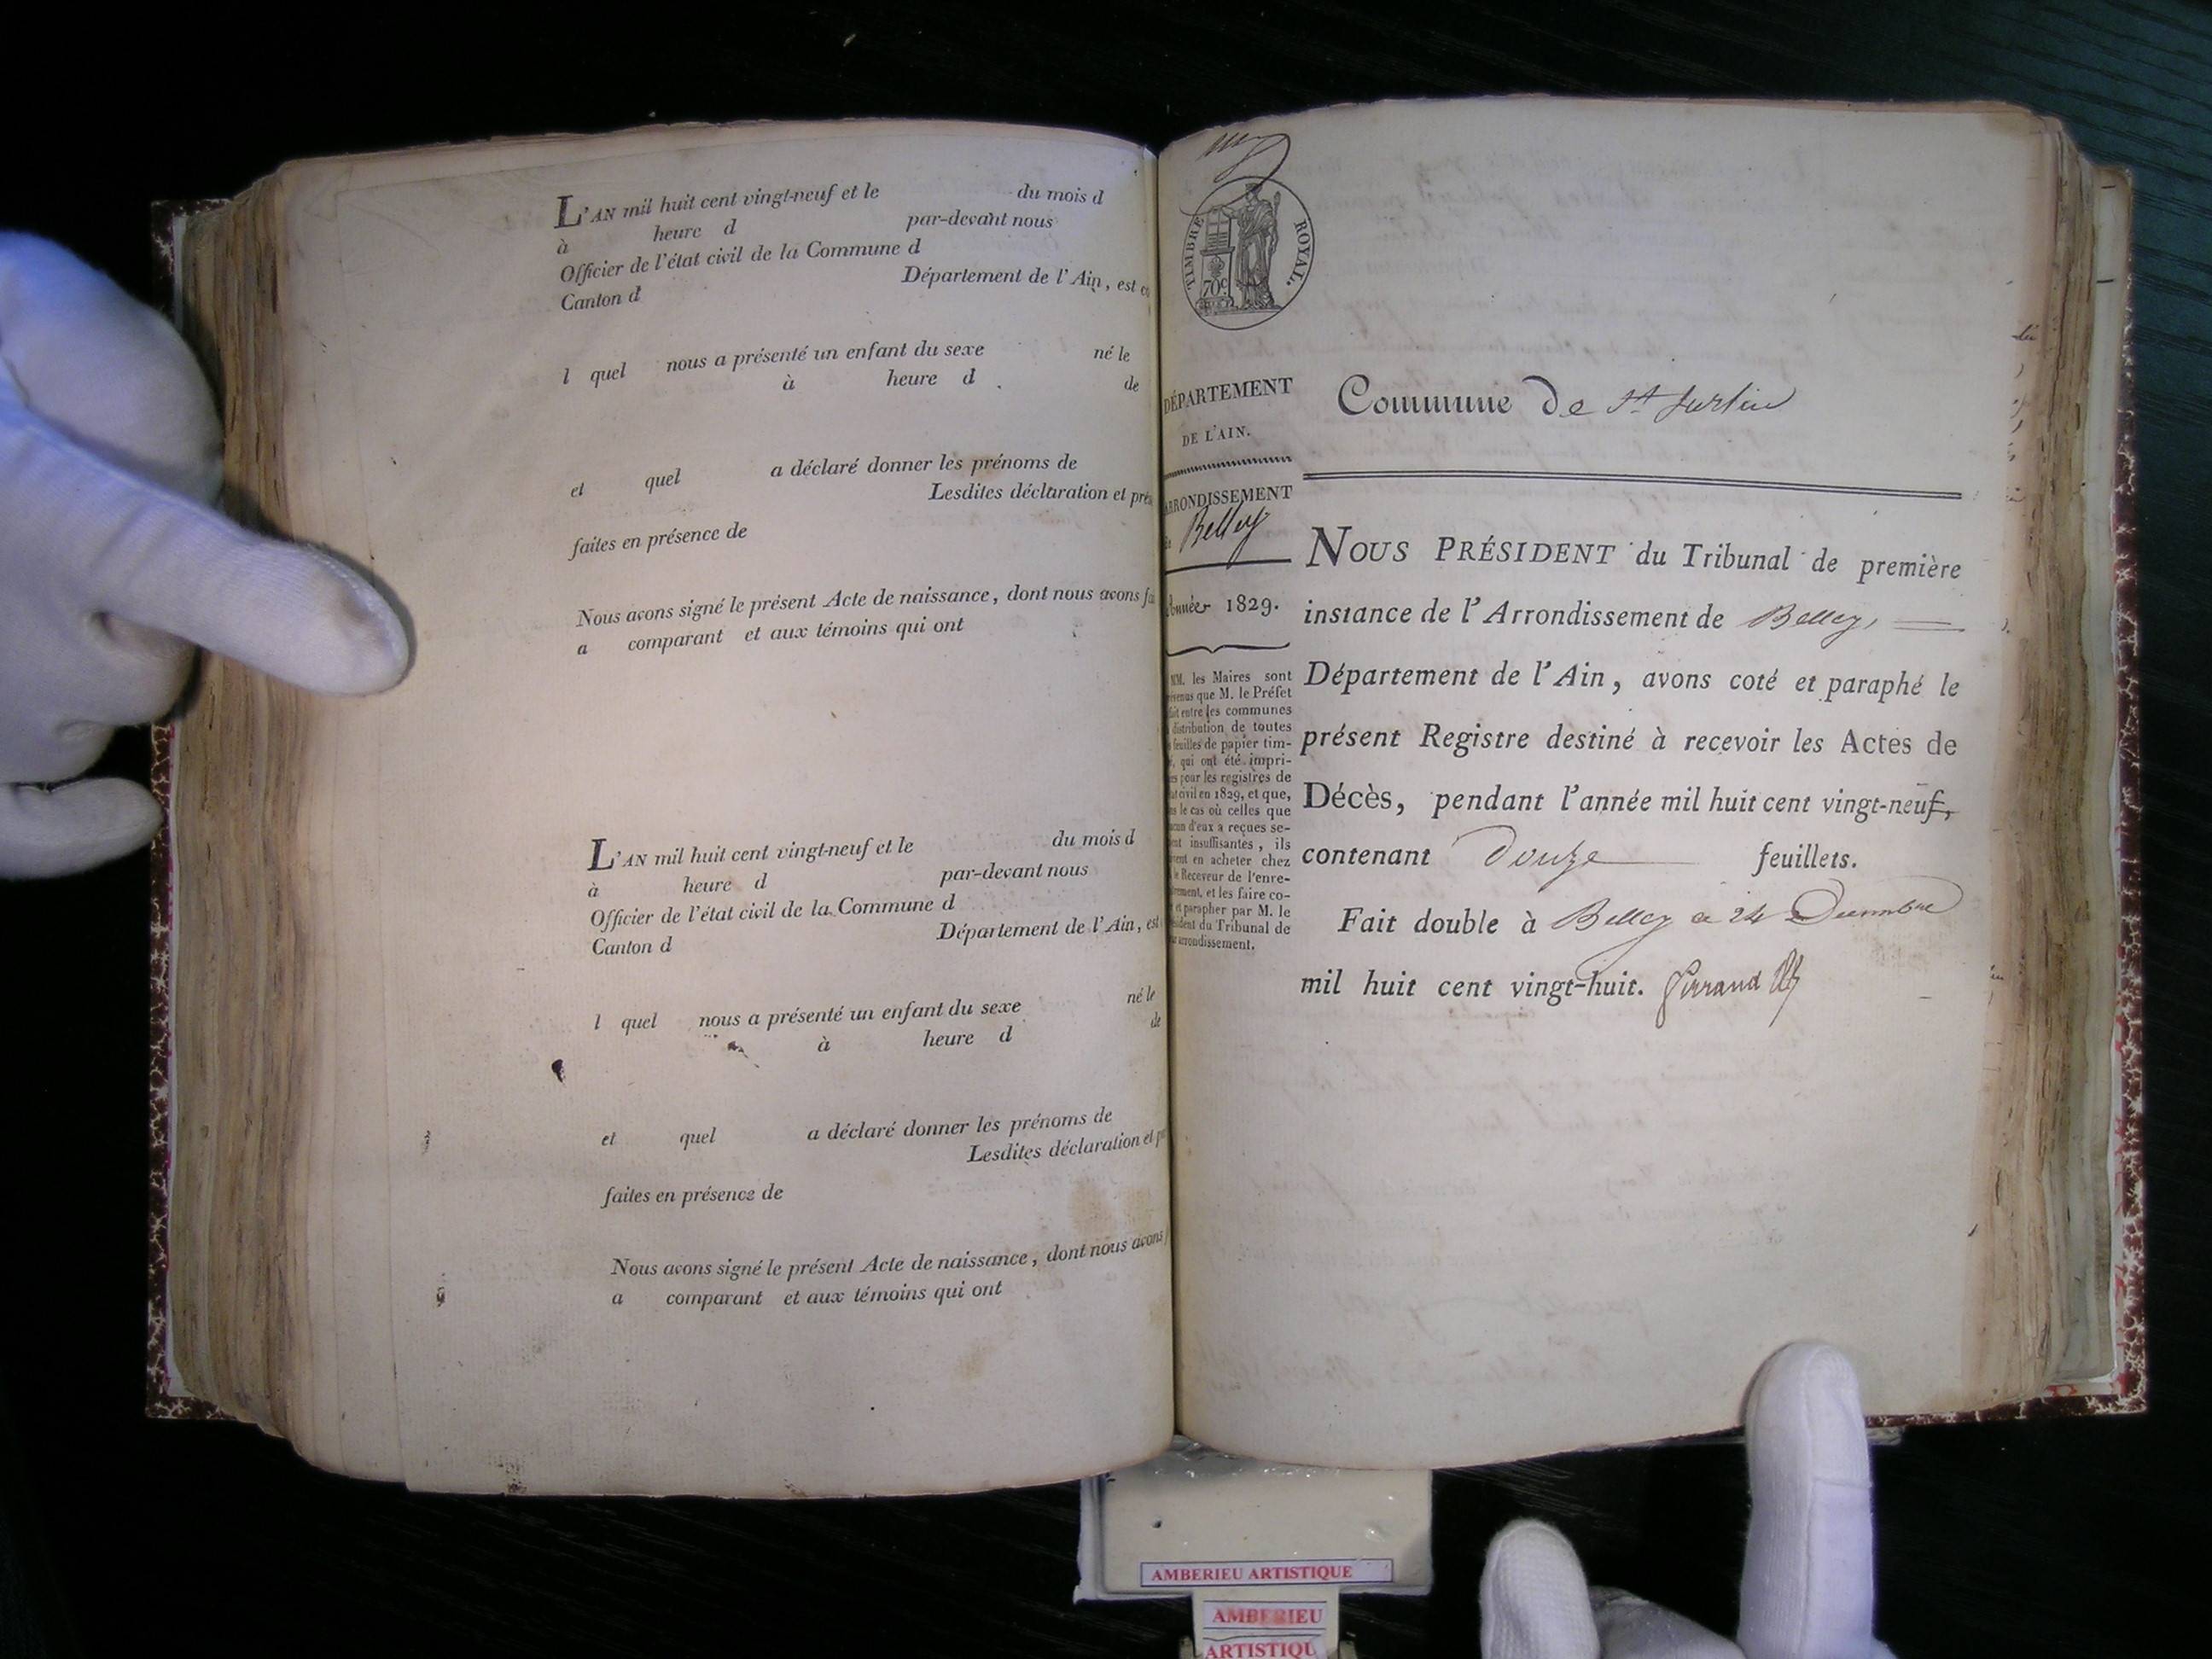 L'AN mil huit cent vingt-neuf et le du mois d
à heure d par-devant nous
Officier de l'état civil de la Commune d
Canton d Département de l'Ain, est
l quel nous a présenté un enfant du sexe né le
à heure d de
et quel a déclaré donner les prénoms de
Lesdites déclaration et
faites en présence de
Nous avons signé le présent Acte de naissance, dont nous avons
a comparant et aux témoins qui ont
L'AN mil huit cent vingt-neuf et le du mois d
à heure d par-devant nous
Officier de l'état civil de la Commune d
Canton d Département de l'Ain, est
l quel nous a présenté un enfant du sexe né le
à heure d de
et quel a déclaré donner les prénoms de
Lesdites déclaration et
faites en présence de
Nous avons signé le présent Acte de naissance, dont nous avons
a comparant et aux témoins qui ont
TIMBRE ROYAL.
70c
DÉPARTEMENT
DE L'AIN.
ARRONDISSEMENT
Belley
Année 1829.
MM. les Maires sont
que M. le Préfet
entre les communes
distribution de toutes
feuilles de papier tim-
qui ont été impri-
pour les registres de
civil en 1829, et que,
le cas où celles que
d'eux a reçues se-
insuffisantes, ils
en acheter chez
le Receveur de l'enre-
et les faire co-
et parapher par M. le
du Tribunal de
arrondissement.
Commune De St Surlin
NOUS PRÉSIDENT du Tribunal de première
instance de l'Arrondissement de Belley,
Département de l'Ain, avons coté et paraphé le
présent Registre destiné à recevoir les Actes de
Décès, pendant l'année mil huit cent vingt-neuf,
contenant Douze feuillets.
Fait double à Belley ce 24 Decembre
mil huit cent vingt-huit.
AMBERIEU ARTISTIQUE
AMBERIEU
ARTISTIQU